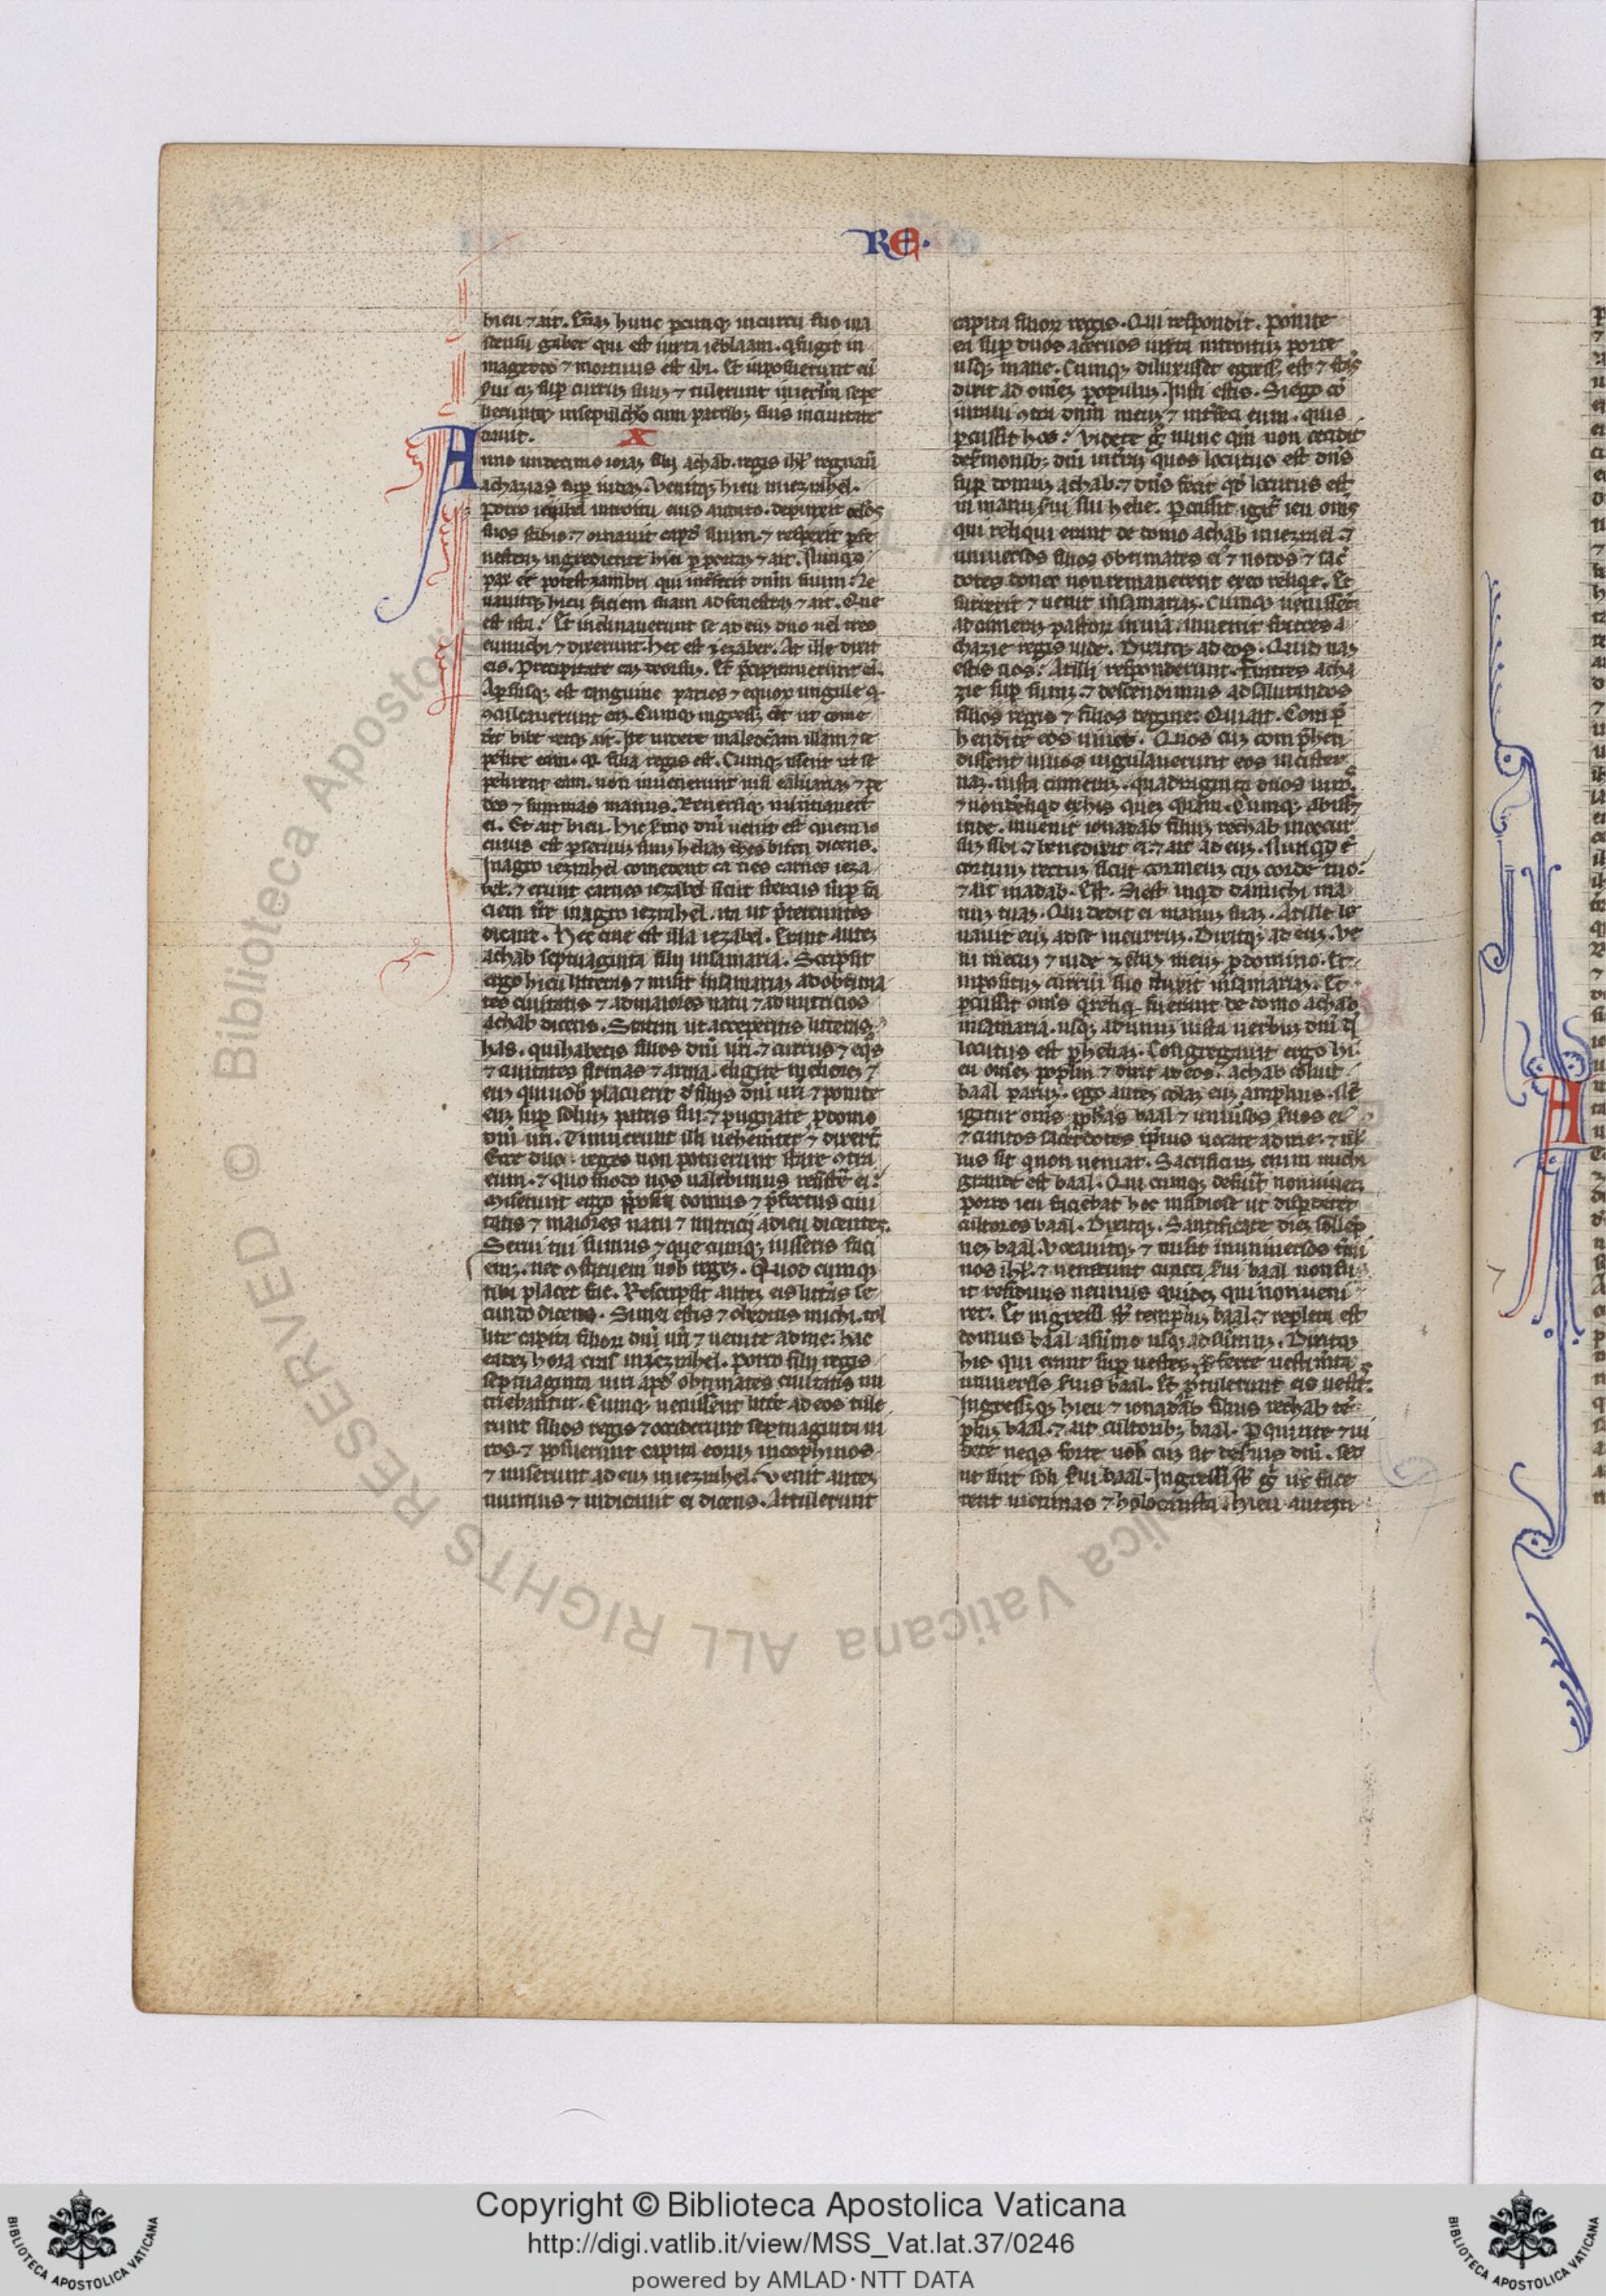 RE.
hieu ⁊ ait. Etiā hunc ꝑcutiꝫ in curru suo in a
scensu gaber qui est iuxta ieblaam. q̇ fugit in
mageddo ⁊ mortuus est ibi. Et inposuerunt eū
sui eꝫ suꝑ currū suuꝫ ⁊ tulerunt in ierlm̄ sepe
lieruntqꝫ in sepulch̄o cum patribꝫ suis in ciuitate
dauit. X
Anno undecimo ioraꝫ filij achab. regis isrl̄ regnauit
achazias suꝑ iudaꝫ. Venitqꝫ hieu in iezrahel.
porro iezabel introitu eius audito. depinxit oculos
suos stibio. ⁊ ornauit caput suum. ⁊ respexit ꝑ fe
nestraꝫ ingrediente hieu ꝑ portaꝫ ⁊ ait. Nunquid
pax ēē potest zambri qui interfecit dn̄m suum. Le
uauitqꝫ hieu faciem suam ad fenestraꝫ ⁊ ait. Que
est ista. Et inclinauerunt se ad euꝫ duo uel tres
eunuchi ⁊ dixerunt. Hec est iezabel. At ille dixit
eis. Precipitate eaꝫ deorsuꝫ. Et p̄cipitauerunt eā.
Aspersusqꝫ est sanguine paries ⁊ equoꝝ ungule q̄
ꝯculcauerunt eaꝫ. Cumqꝫ ingressꝫ eēt ut come
deret biberetqꝫ ait. Ite uidete maledictam illam ⁊ se
pelite eam. qꝛ filia regis est. Cumqꝫ issent ut se
pelirent eam. non inuenerunt nisi caluariaꝫ ⁊ pe
des ⁊ summas manus. Reuersiqꝫ nuntiauerūt
ei. Et ait hieu. Hic sermo dn̄i uenit est quem lo
cutus est ꝑ seruum suuꝫ heliaꝫ thesbiten dicens.
In agro iezrahel comedent canes carnes ieza
bel. ⁊ erunt carnes iezabel sicut stercus suꝑ fa
ciem tr̄e in agro iezrahel. ita ut p̄tereuntes
dicant. Hec cine est illa iezabel. Erant auteꝫ
achab septuaginta filij in samaria. Scripsit
ergo hieu litteras ⁊ misit in samariaꝫ ad obtima
tes ciuitatis ⁊ ad maiores natu ⁊ ad nutricios
achab dicens. Statim ut acceperitis litteras
has. qui habetis filios dn̄i ur̄i. ⁊ currus ⁊ eqͦs
⁊ ciuitates firmas ⁊ arma. eligite melioreꝫ ⁊
euꝫ qui uob̄ placuerit d̄ filijs dn̄i ur̄i ⁊ ponite
euꝫ suꝑ soliuꝫ patris sui. ⁊ pugnate ꝓ domo
dn̄i ur̄i. Timuerunt illi uehemēter ⁊ dixerūt.
Ecce duo reges non potuerunt stare ꝯtra
eum. ⁊ quomodo nos ualebimus resistēre ei.
Miserunt ergo p̄positi domus ⁊ p̄fectus ciui
tatis ⁊ maiores natu ⁊ nutricij ad ieu dicenteꝫ.
Serui tui sumus ⁊ que cumqꝫ iusseris faci
emꝫ. nec ꝯstituem nob̄ regeꝫ. Quod cumqꝫ
tibi placet fac. Rescripsit auteꝫ eis litteras se
cundo dicens. Si mei estis ⁊ obeditis michi. tol
lite capita filioꝝ dn̄i ur̄i ⁊ uenite ad me. hac
eadeꝫ hora cras in iezrahel. porro filij regis
septuaginta uiri apd̄ obtimates ciuitatis nu
triebantur. Cumqꝫ uenissent litt̄e ad eos tule
runt filios regis ⁊ occiderunt septuaginta ui
ros. ⁊ posuerunt capita eoruꝫ in cophinos
⁊ miserunt ad euꝫ in iezrahel. Venit auteꝫ
nuntius ⁊ indicauit ei dicens. Attulerunt
capita filioꝝ regis. Qui respondit. ponite
ea suꝑ duos aceruos iuxta introituꝫ porte
usqꝫ mane. Cumqꝫ diluxisset egressꝫ est ⁊ stās
dixit ad omneꝫ populuꝫ. Iusti estis. Si ego cō
iuraui ꝯtra dn̄m meuꝫ ⁊ int̄feci eum. quis
ꝑcussit hos. Videte ḡ nunc qm̄ non cecidit
de s̄monibꝫ dn̄i in terraꝫ quos locutus est dn̄s
suꝑ domuꝫ achab. ⁊ dn̄s fecit qd̄ locutus est
in manu s̄ui sui helie. Percussit igit̄ ieu om̄s
qui reliqui erant de domo achab in iezrael. ⁊
uniuersos filios obtimates ei ⁊ notos ⁊ sac̄
dotes donec non remanerent ex eo reliqie. Et
surrexit ⁊ uenit in samariaꝫ. Cumqꝫ uenisset
ad cameraꝫ pastorꝝ in uia. inuenit fratres a
chazie regis iude. Dixitqꝫ ad eos. Qui naꝫ
estis uos. At illi responderunt. Fratres acha
zie suꝑ sumꝫ. ⁊ descendimus ad salutandos
filios regis ⁊ filios regine. Qui ait. Comp̄
hendite eos uiuos. Quos cuꝫ comp̄hen
dissent uiuos iugulauerunt eos in cister
naꝫ. iuxta cameraꝫ. quadraginta duos uiros
⁊ non reliqͦd ex his queꝫ quam. Cumqꝫ abissꝫ
inde. inuenit ionadab filiuꝫ rechab in occur
suꝫ sibi ⁊ benedixit ei. ⁊ ait ad euꝫ. Nunqd̄ ē
cor tuuꝫ rectuꝫ sicut cor meuꝫ cuꝫ corde tuo.
⁊ ait ionadab. Est. Si est inqͦd da michi ma
nuꝫ tuaꝫ. Qui dedit ei manuꝫ suaꝫ. At ille le
uauit euꝫ ad se in curruꝫ. Dixitqꝫ ad euꝫ. Ve
ni mecuꝫ ⁊ uide zeluꝫ meuꝫ ꝓ domino. Et
inpositūꝫ currui suo duxit in samariaꝫ. Et
ꝑcussit om̄s q̇ reliqͥ fuerant de domo achab
in samaria. usqꝫ ad unuꝫ iuxta uerbuꝫ dn̄i qd̄
locutus est ꝑ heliaꝫ. Congregauit ergo hi
eu omneꝫ popl̄m ⁊ dixit ad eos. achab coluit
baal paruꝫ. ego auteꝫ colaꝫ euꝫ amplius. Nc̄
igitur om̄s ꝓphetas baal ⁊ uniūsos s̄uos ei
⁊ cuntos sacerdotes ip̄ius uocate ad me. ⁊ nul
lus sit q̇ non ueniat. Sacrificiuꝫ enim michi
grande est baal. Qui cumqꝫ defuīt non uiuet.
porro ieu faciebat hoc insidiose ut disꝑderet
cultores baal. Dixitqꝫ. Sanctificate dieꝫ sollēp
neꝫ baal. Vocauitqꝫ ⁊ misit in uniuersos t̄mi
nos isrl̄. ⁊ uenerunt cuncti s̄ui baal. non fu
it residuus ne unus quideꝫ qui non ueni
ret. Et ingressi st̄ templuꝫ baal. ⁊ repleta est
domus baal a summo usqꝫ ad summuꝫ. Dixitqꝫ
his qui erant suꝑ uestes. ꝓferte uestim̄ta
uniuersis s̄uis baal. Et ꝓtulerunt eis uestes.
Ingressꝫqꝫ hieu ⁊ ionadab filius rechab tē
pluꝫ baal. ⁊ ait cultoribꝫ baal. Perquirite ⁊ ui
dete ne qͥs forte uob̄ cuꝫ sit de s̄uis dn̄i. sed
ut sint soli s̄ui baal. Ingressi st̄ ḡ ut face
rent uictimas ⁊ holocausta. hieu autem
Copyright © Biblioteca Apostolica Vaticana
http://digi.vatlib.it/view/MSS_Vat.lat.37/0246
powered by AMLAD·NTT DATA